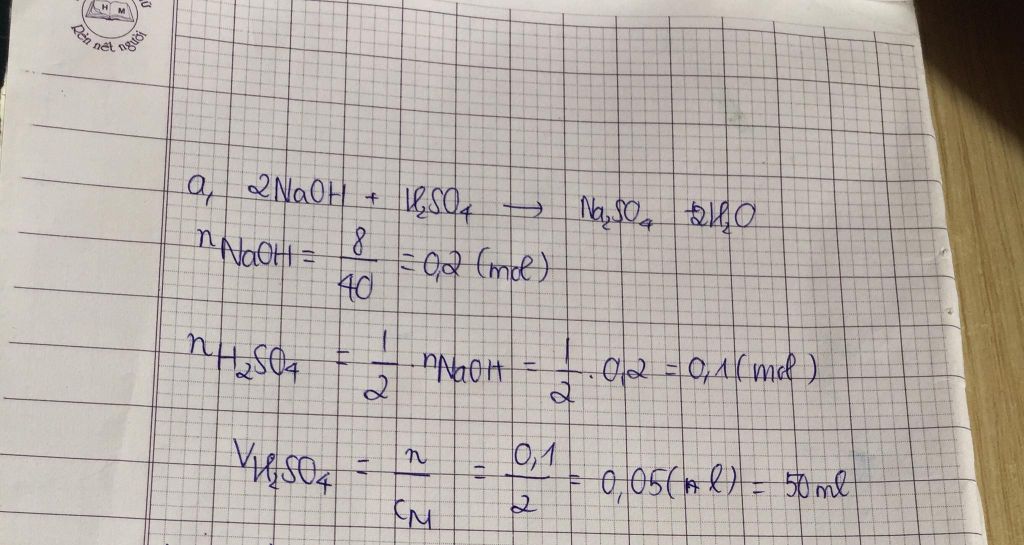 HM
Rèn nết người
a, 2NaOH + H₂SO₄ → Na₂SO₄ + 2H₂O
nNaOH = 8/40 = 0,2 (mol)
nH₂SO₄ = 1/2 . nNaOH = 1/2 . 0,2 = 0,1 (mol)
VH₂SO₄ = n/CM = 0,1/2 = 0,05 (l) = 50ml